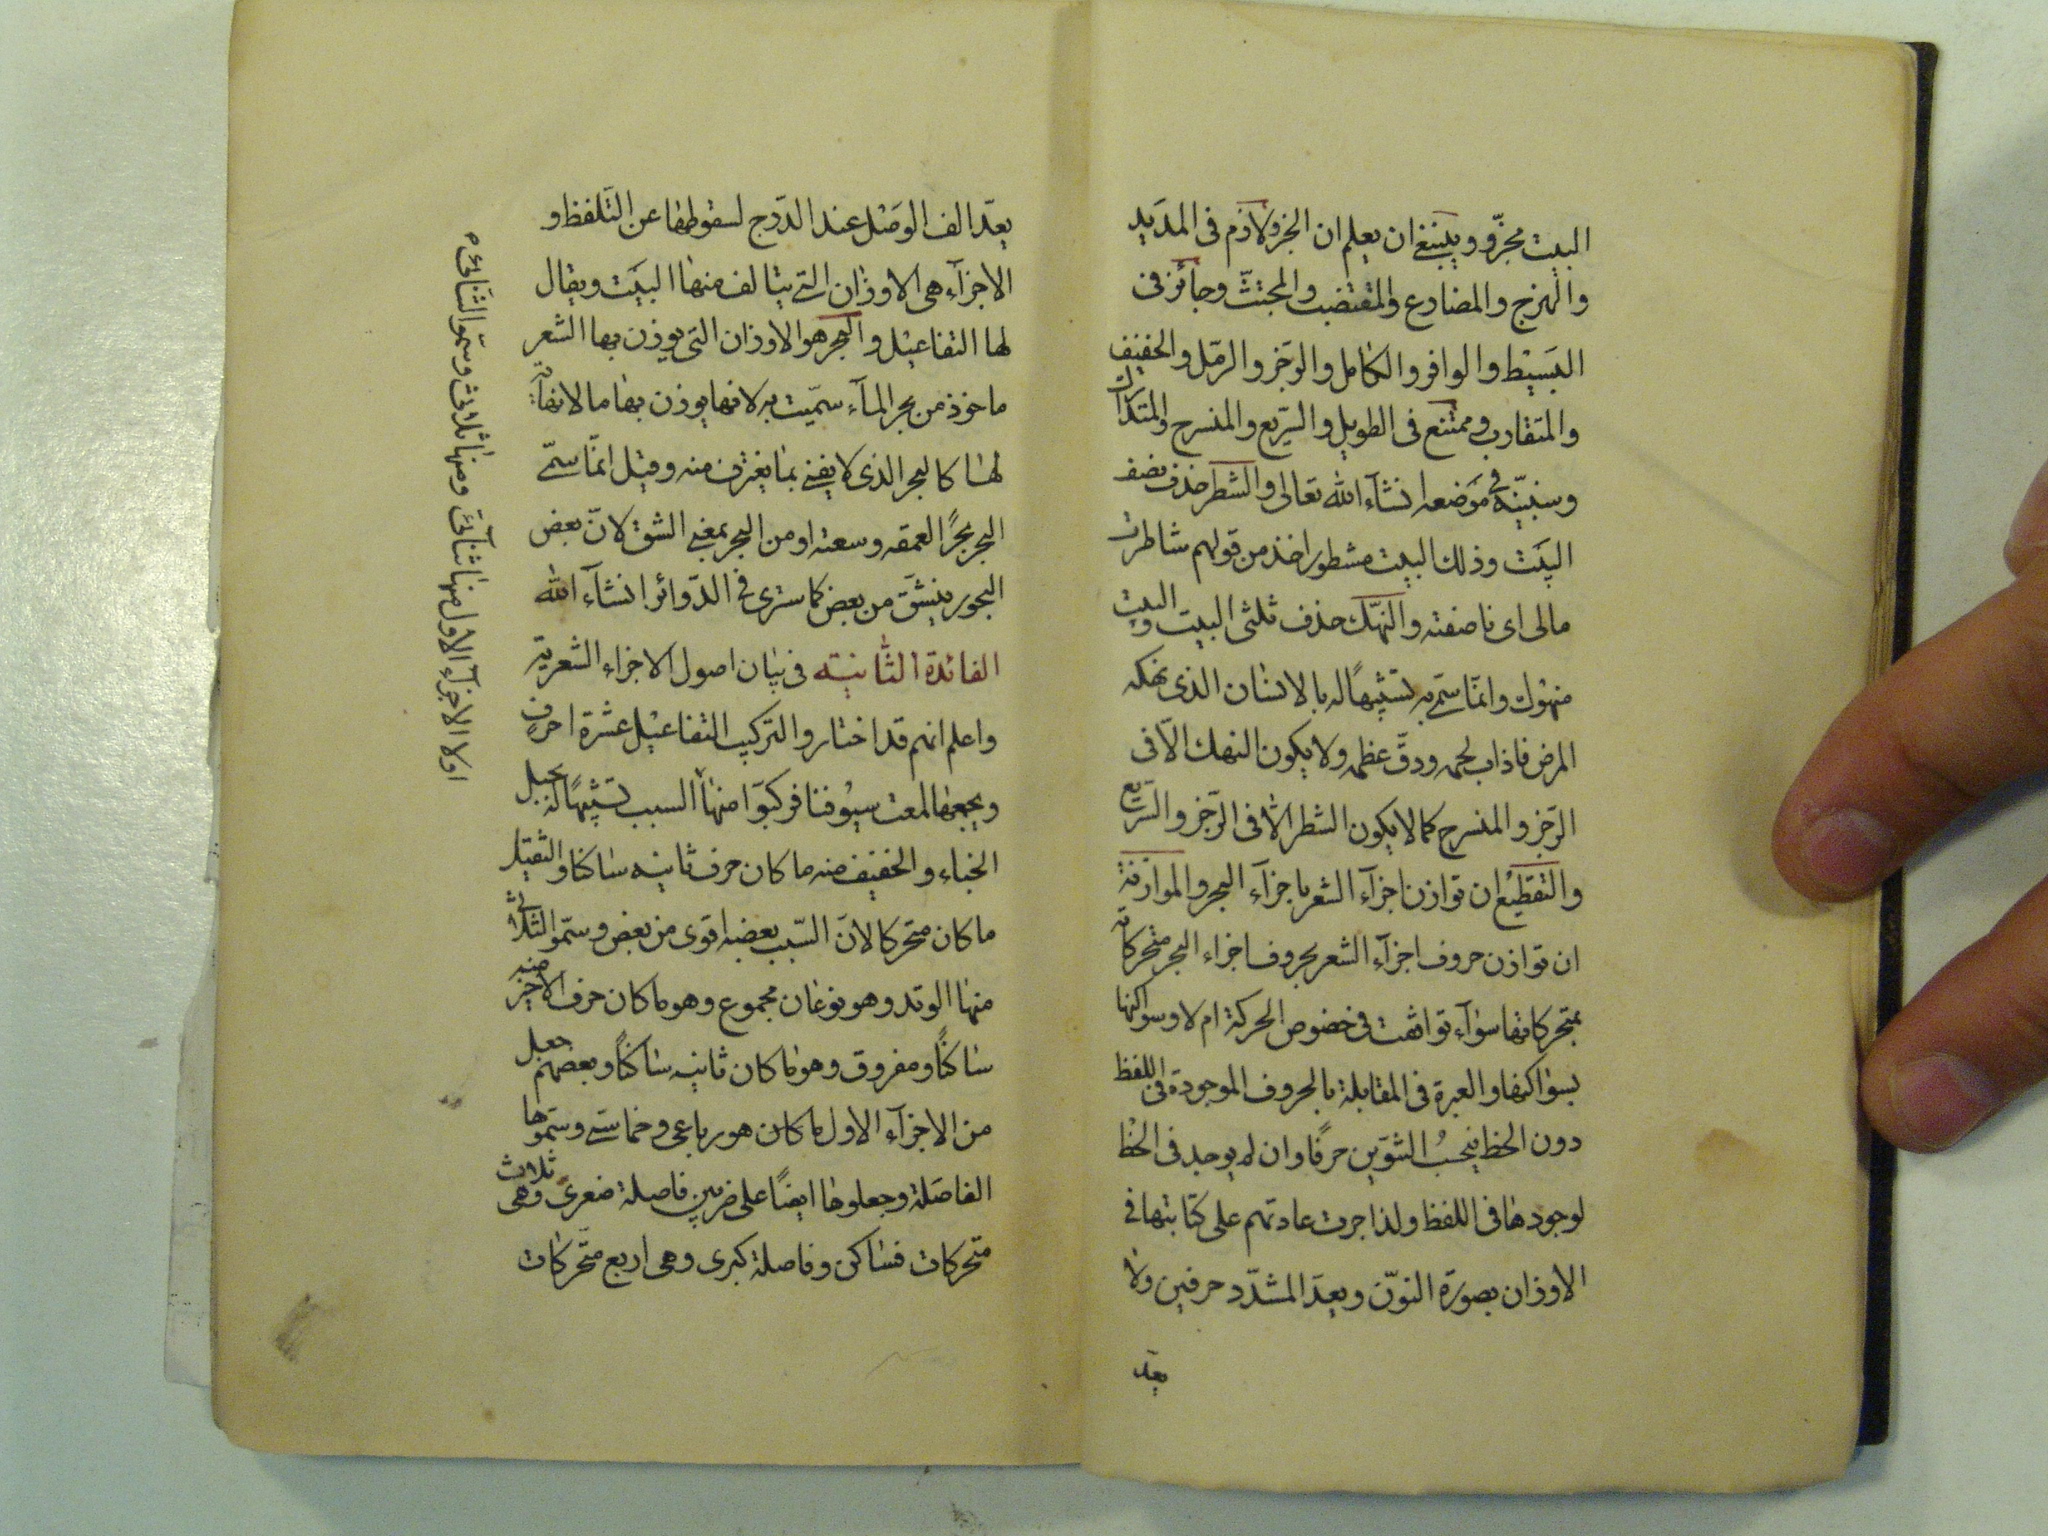 البيت مجزّو وينبغى ان يعلم ان الجزو لازم فى المديد
والهزج والمضارع والمقتضب والمجتثّ وجائز فى
البسيط والوافر والكامل والرجز والرمل والخفيف
والمتقارب وممتنع فى الطويل والسريع والمنسرح والمتدارك
وسنبيّنه فى موضعه انشآء الله تعالى والشطر حذف نصف
البيت وذلك البيت مشطور اخذ من قولهم شاطرت
مالى اى ناصفته والنهك حذف ثلثى البيت والبيت
منهوك وانما سمّى به تشبيهًا له بالانسان الذى نهكه
المرض فاذاب لحمه ودقّ عظمه ولا يكون النهك الّا فى
الرجز والمنسرح كما لا يكون الشطر الّا فى الرجز والسريع
والتقطيع ان توازن اجزآء الشعر باجزآء البحر والموازنة
ان توازن حروف اجزآء الشعر بحروف اجزاء البحر متحركاته
بمتحركاتها سوآء توافقت فى خصوص الحركة ام لا وسواكنها
بسواكنها والعبرة فى المقابلة بالحروف الموجودة فى اللفظ
دون الخظ فيحسب التنوين حرفًا وان لم يوجد فى الخظ
لوجودها فى اللفظ ولذا جرت عادتهم على كتابتها فى
الاوزان بصورة النون ويعدّ المشدّد حرفين ولا
يعدّ
يعدّ الف الوصل عند الدرج لسقوطها عن التلفظ و
الاجزآء هى الاوزان التى يتالف منها البيت ويقال
لها التفاعيل والبحر هو الاوزان التى يوزن بها الشعر
ماخوذ من بحر المآء سمّيت به لانها يوزن بها ما لا نهاية
لها كالبحر الذى لا يفنى بما يغترف منه وقيل انّما سمّى
البحر بحرًا لعمقه وسعته او من البحر بمعنى الشق لانّ بعض
البحور ينشق من بعض كما سترى فى الدّوائر انشآء الله
الفائدة الثانية فى بيان اصول الاجزاء الشعرية
واعلم انهم قد اختاروا لتركيب التفاعيل عشرة احرف
ويجمعها لمعت سيوفنا فركبوا منها السبب تشبيهًا له بحبل
الخباء والخفيف منه ما كان حرف ثانيه ساكنا والثقيل
ما كان متحركا لانّ السّبب بعضه اقوى من بعض وسمّو الثلاثى
منها الوتد وهو نوعان مجموع وهو ما كان حرف الاخير منه
ساكنًا ومفروق وهو ما كان ثانيه ساكنًا وبعضهم جعل
من الاجزآء الاول ما كان هو رباعى وخماسى وسمّوها
الفاصلة وجعلوها ايضًا على ضربين فاصلة صغرى وهى ثلاث
متحركات فساكن وفاصلة كبرى وهى اربع متحركات
اولا الاجزآء الاول منها ثنآئى ومنها ثلاثى وسمّو الثنائى م